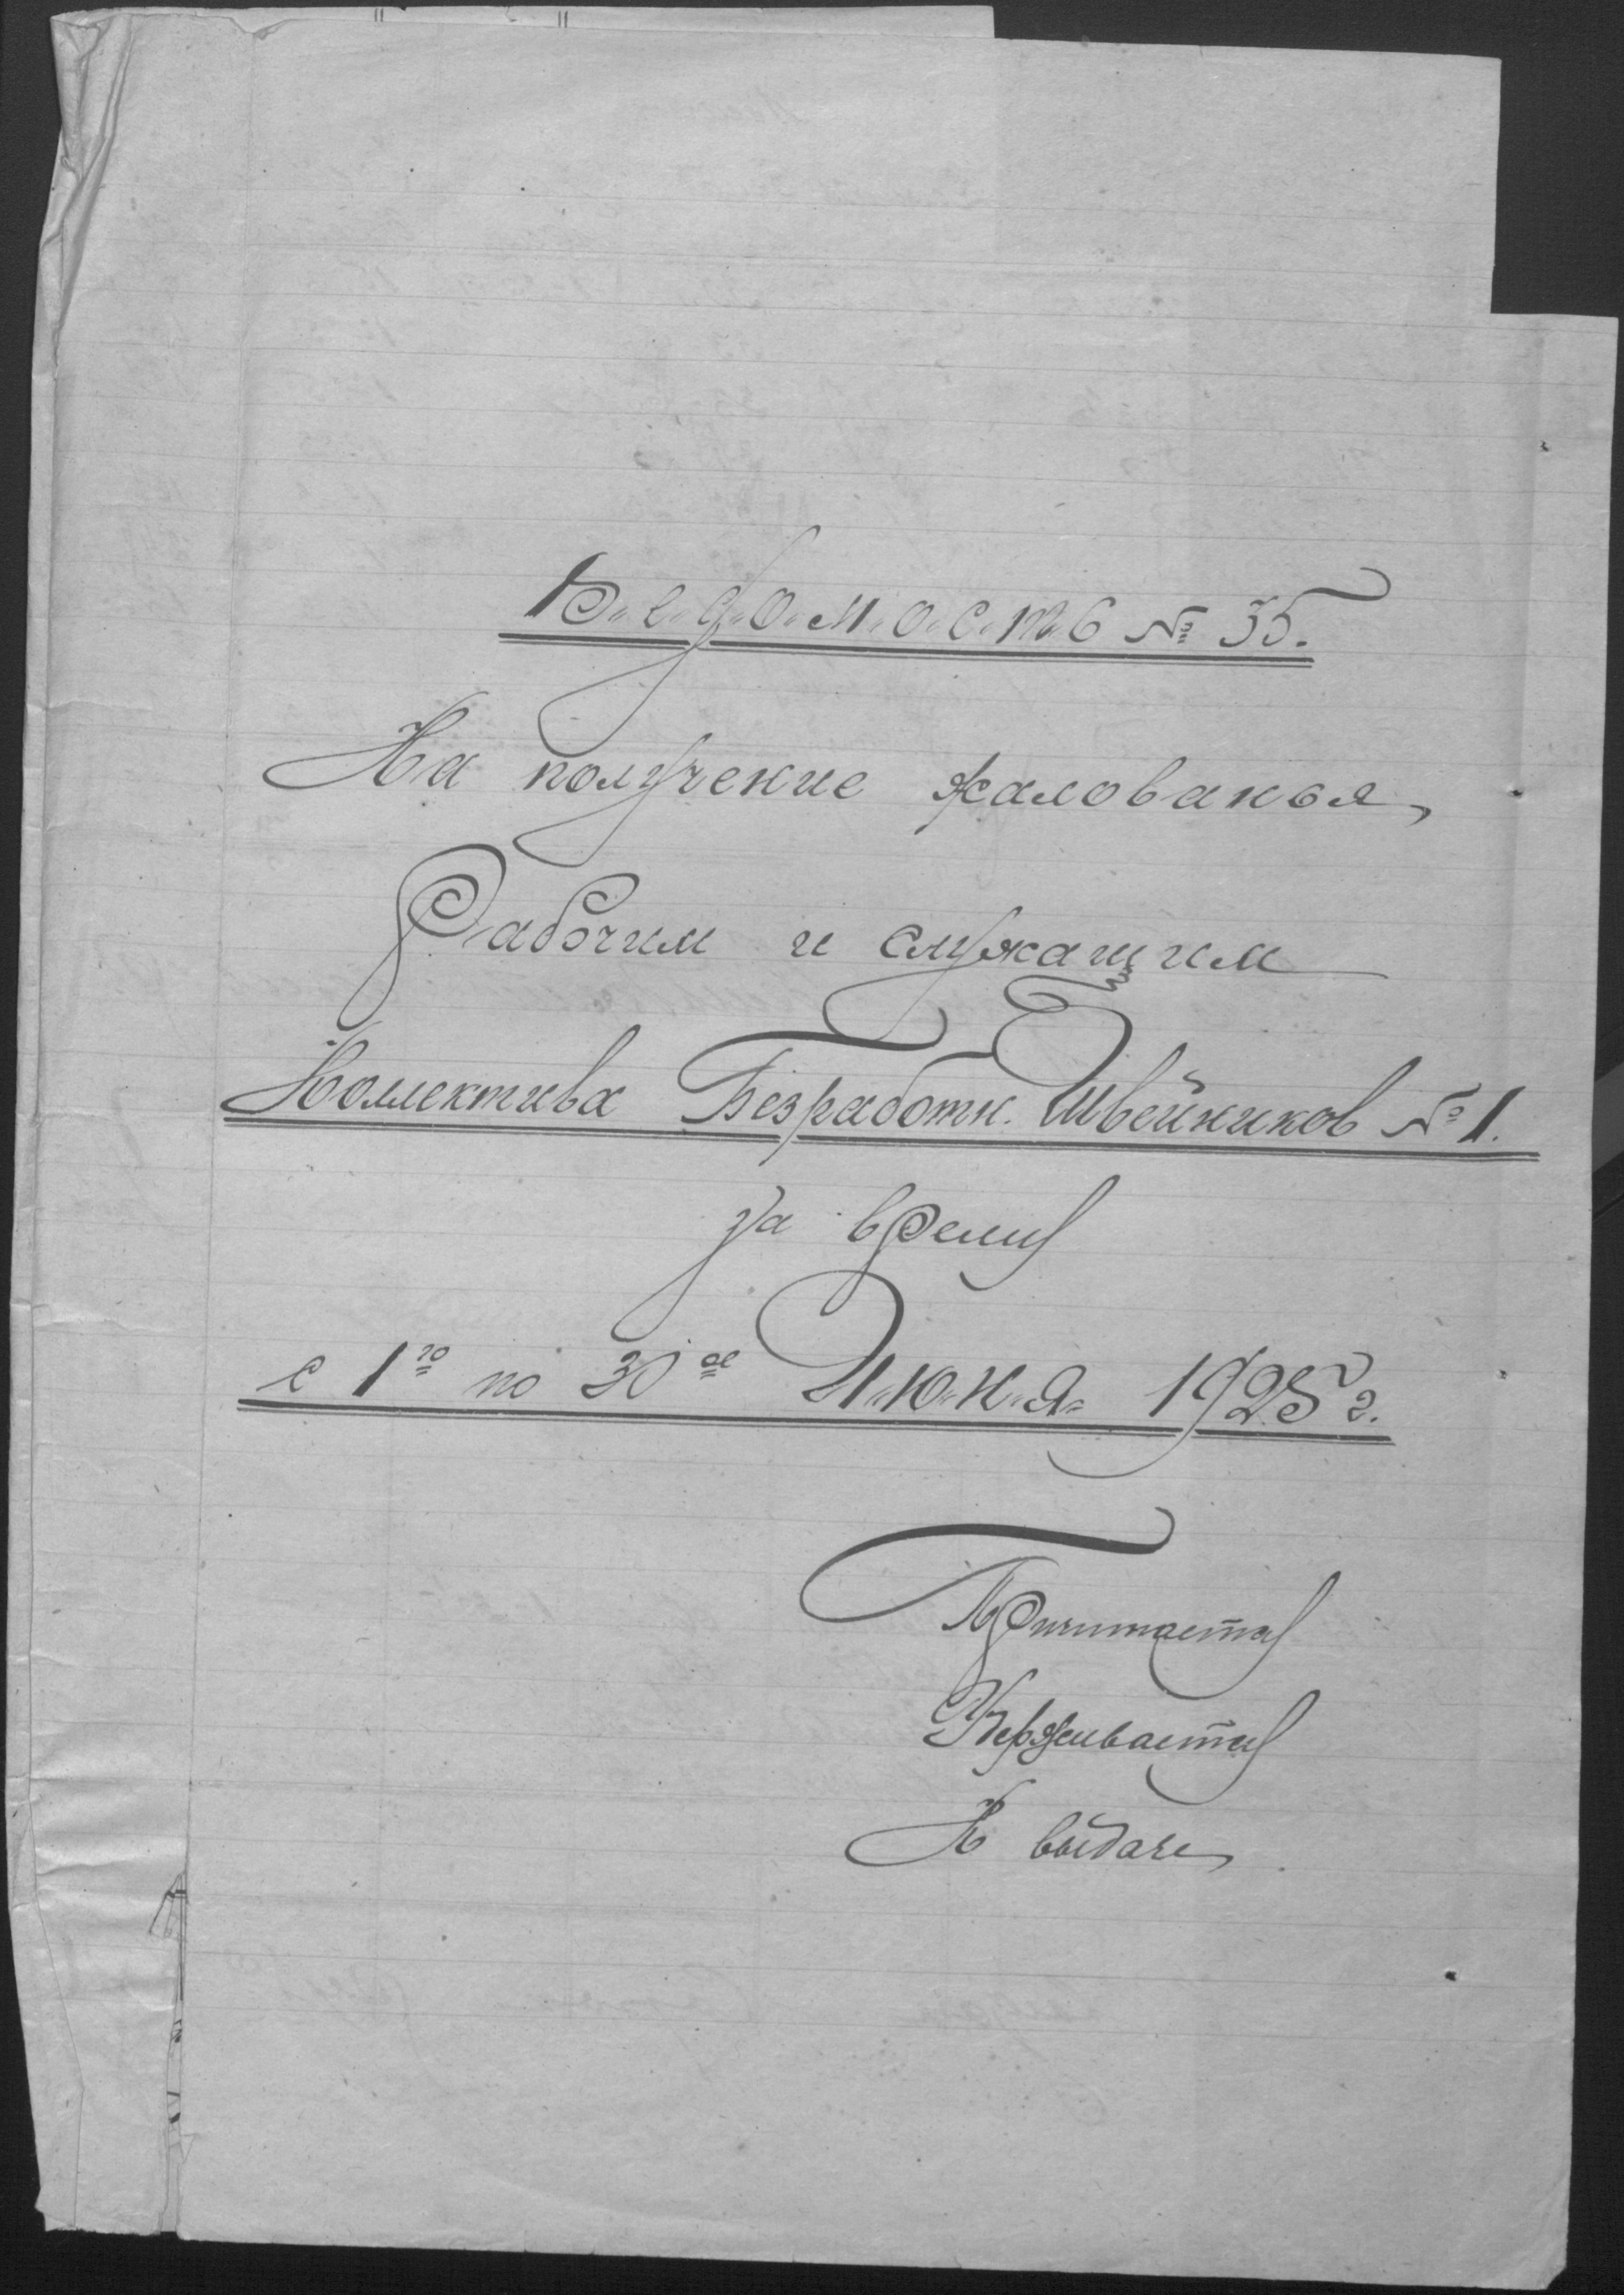 В.е.д.о.м.о.с.т.ь № 35.
На получение жалованья
Рабочим и служащим
Коллектива Безработн. Швейников № 1.
за время
с 1го по 30ое И.ю.н.я. 1925 г.
Причитается
Удерживается
К выдаче